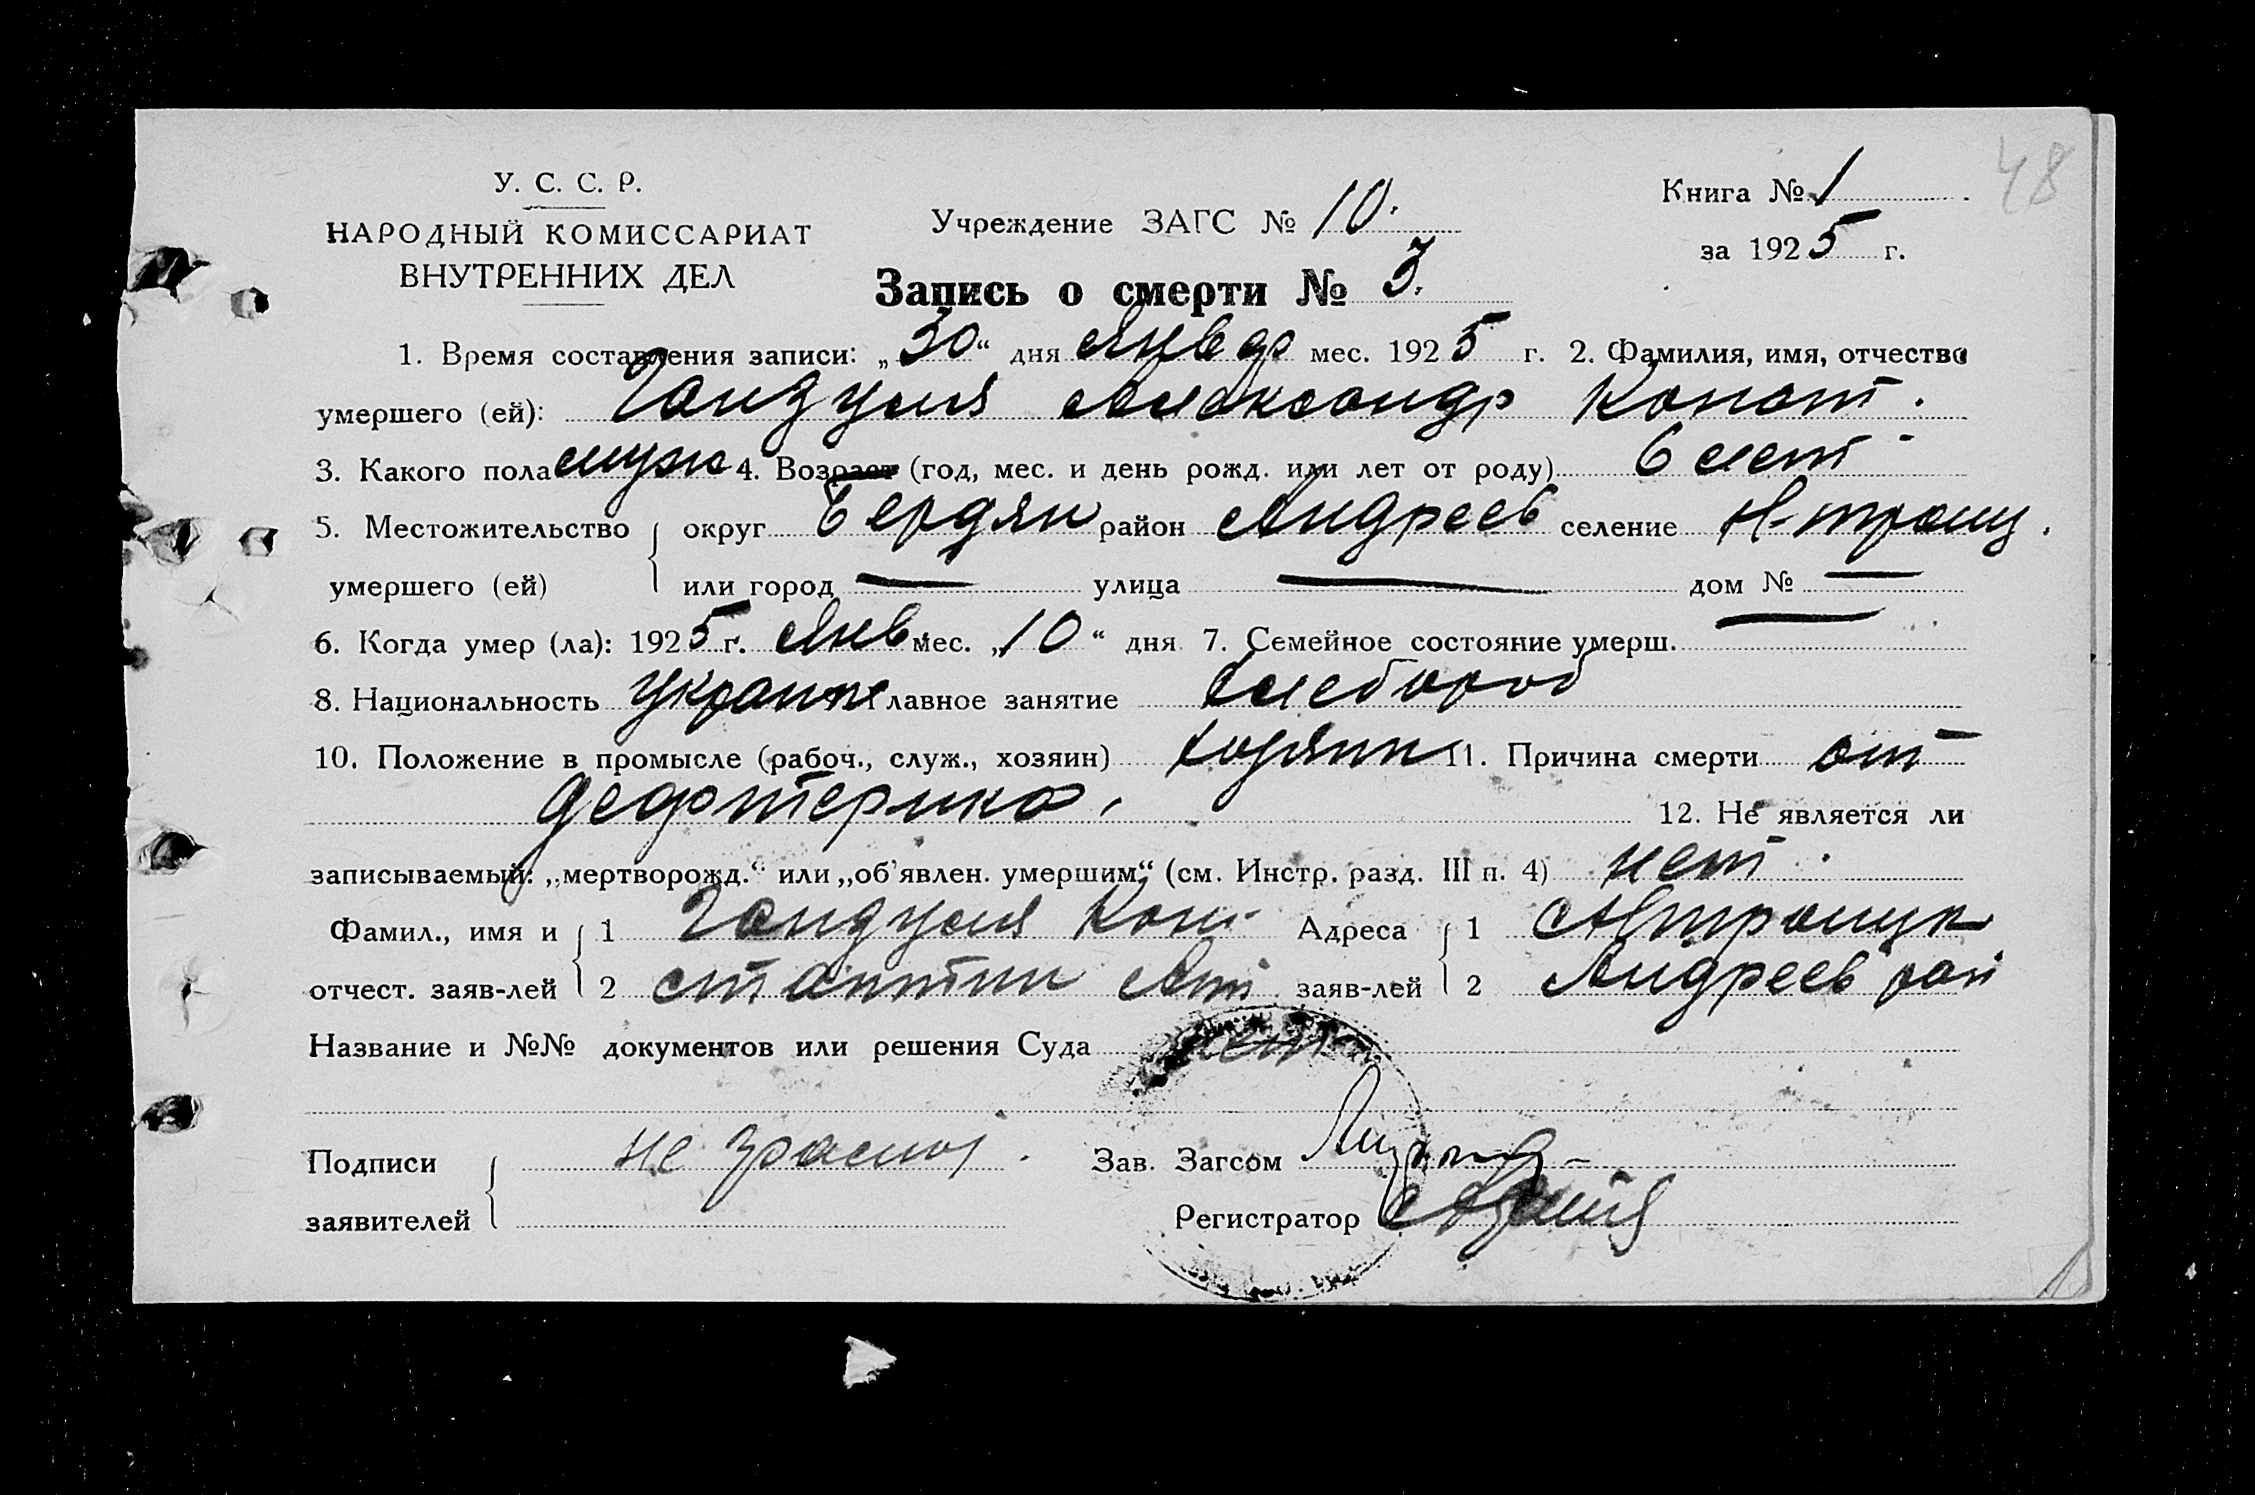 48
У. С. С. Р.
НАРОДНЫЙ КОМИССАРИАТ
ВНУТРЕННИХ ДЕЛ
Учреждение ЗАГС № 10.
Книга № 1
за 1925 г.
Запись о смерти № 3.
1. Время составления записи: „30“ дня Январ мес. 1925 г. 2. Фамилия, имя, отчество
умершего (ей): Гандуля Александр Конст.
3. Какого пола муж 4. Возраст (год, мес. и день рожд. или лет от роду) 6 лет
5. Местожительство округ Бердян район Андреев селение Н-троиц.
умершего (ей) или город — улица — дом № —
6. Когда умер (ла): 1925 г. Янв мес. „10“ дня 7. Семейное состояние умерш. —
8. Национальность украин Главное занятие хлебороб
10. Положение в промысле (рабоч., служ., хозяин) хозяин 11. Причина смерти от
12. Не является ли
записываемый: „мертворожд.“ или „об'явлен. умершим“ (см. Инстр. разд. III п. 4) нет.
Фамил., имя и 1 Гандуля Кон- Адреса 1
отчест. заяв-лей 2 стантин заяв-лей 2 Андреев рай
Название и №№ документов или решения Суда нет
Подписи не Зав. Загсом
заявителей Регистратор